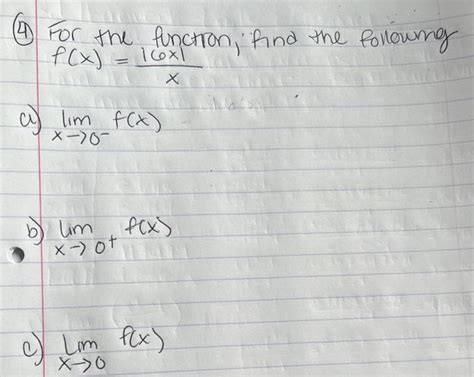 ④ For the function, find the following
f(x) = |6x|
x
a) lim f(x)
x→0⁻
b) lim f(x)
x→0⁺
c) Lim f(x)
x→0